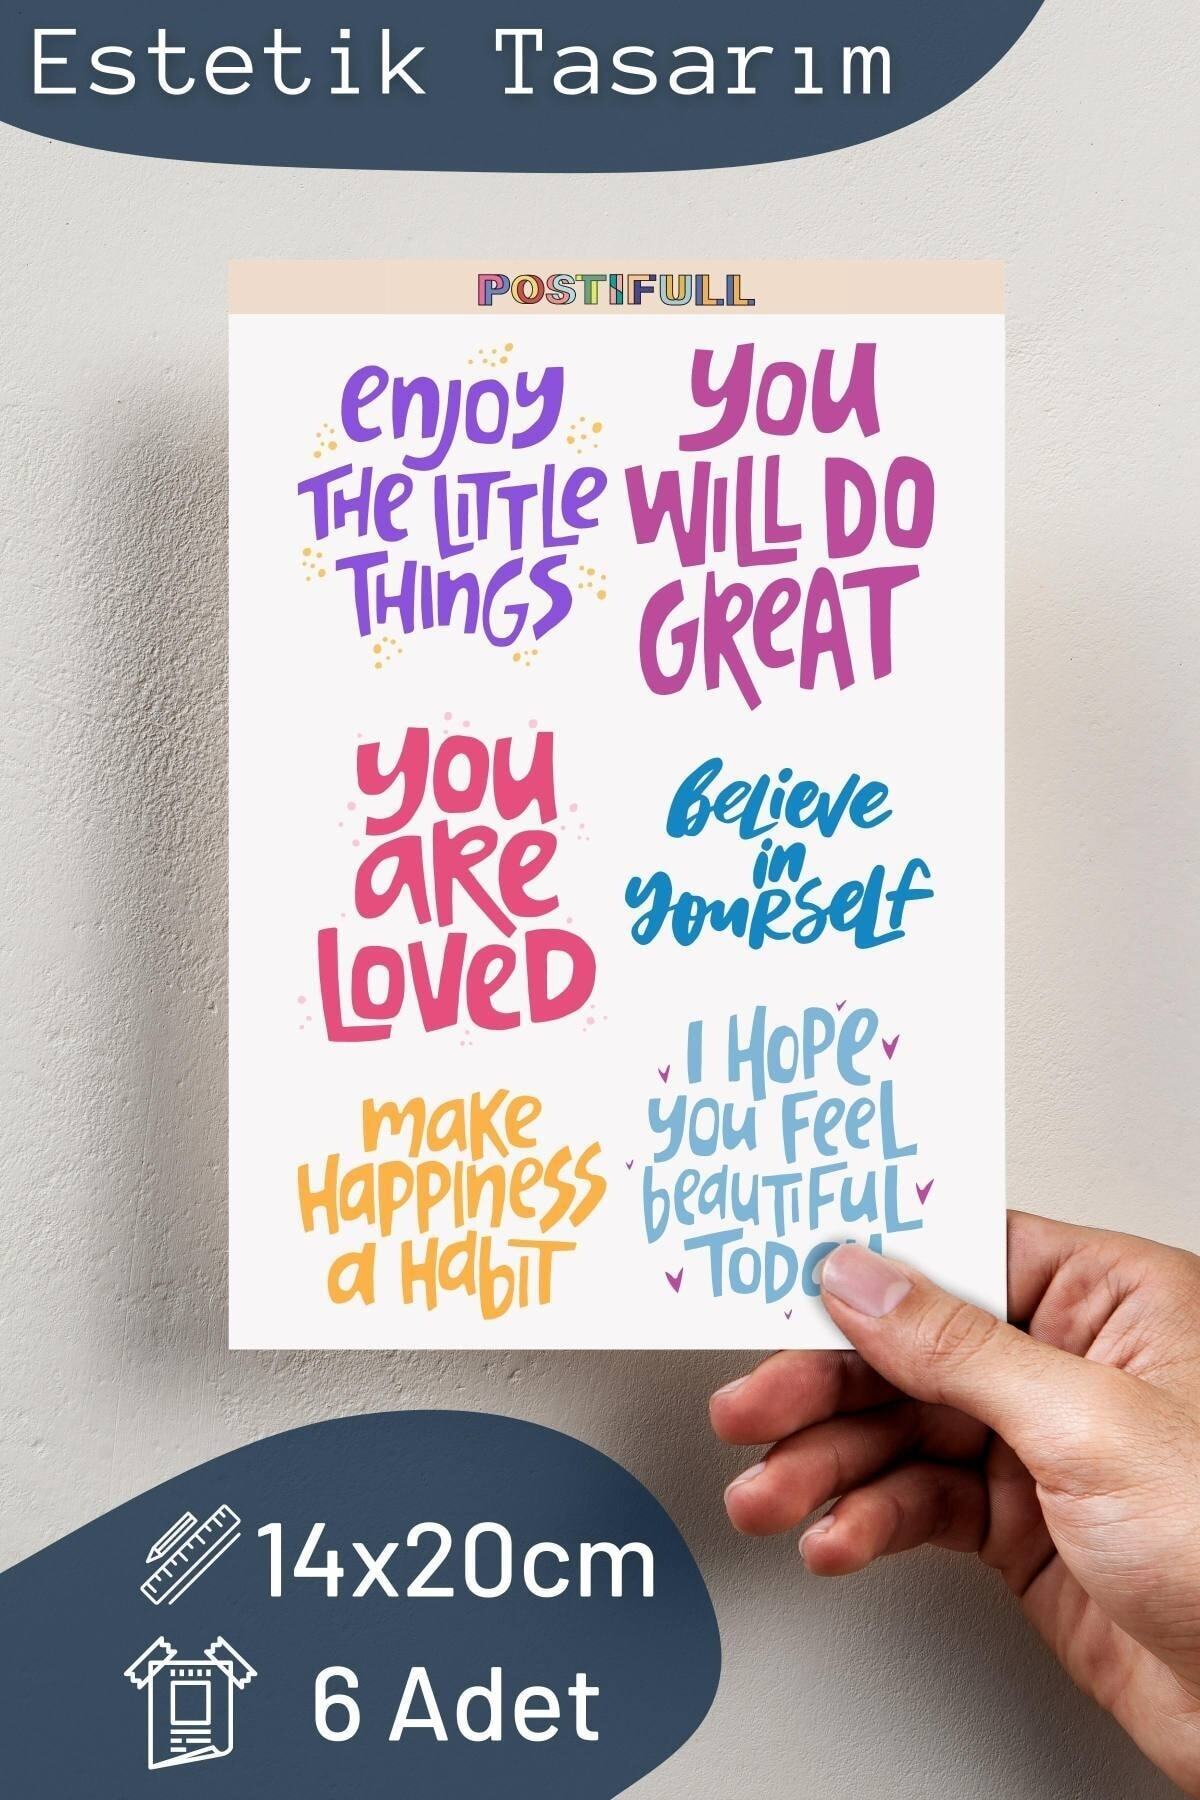 Estetik Tasarım
POSTIFULL
enjoy
THe LITTLe
THInGS
you
WILL DO
GReAT
you
aRe
LOVeD
Believe
in
youRSeLf
make
HappIness
a HabIT
I HOPe
you FeeL
beauTIFuL
14x20cm
6 Adet